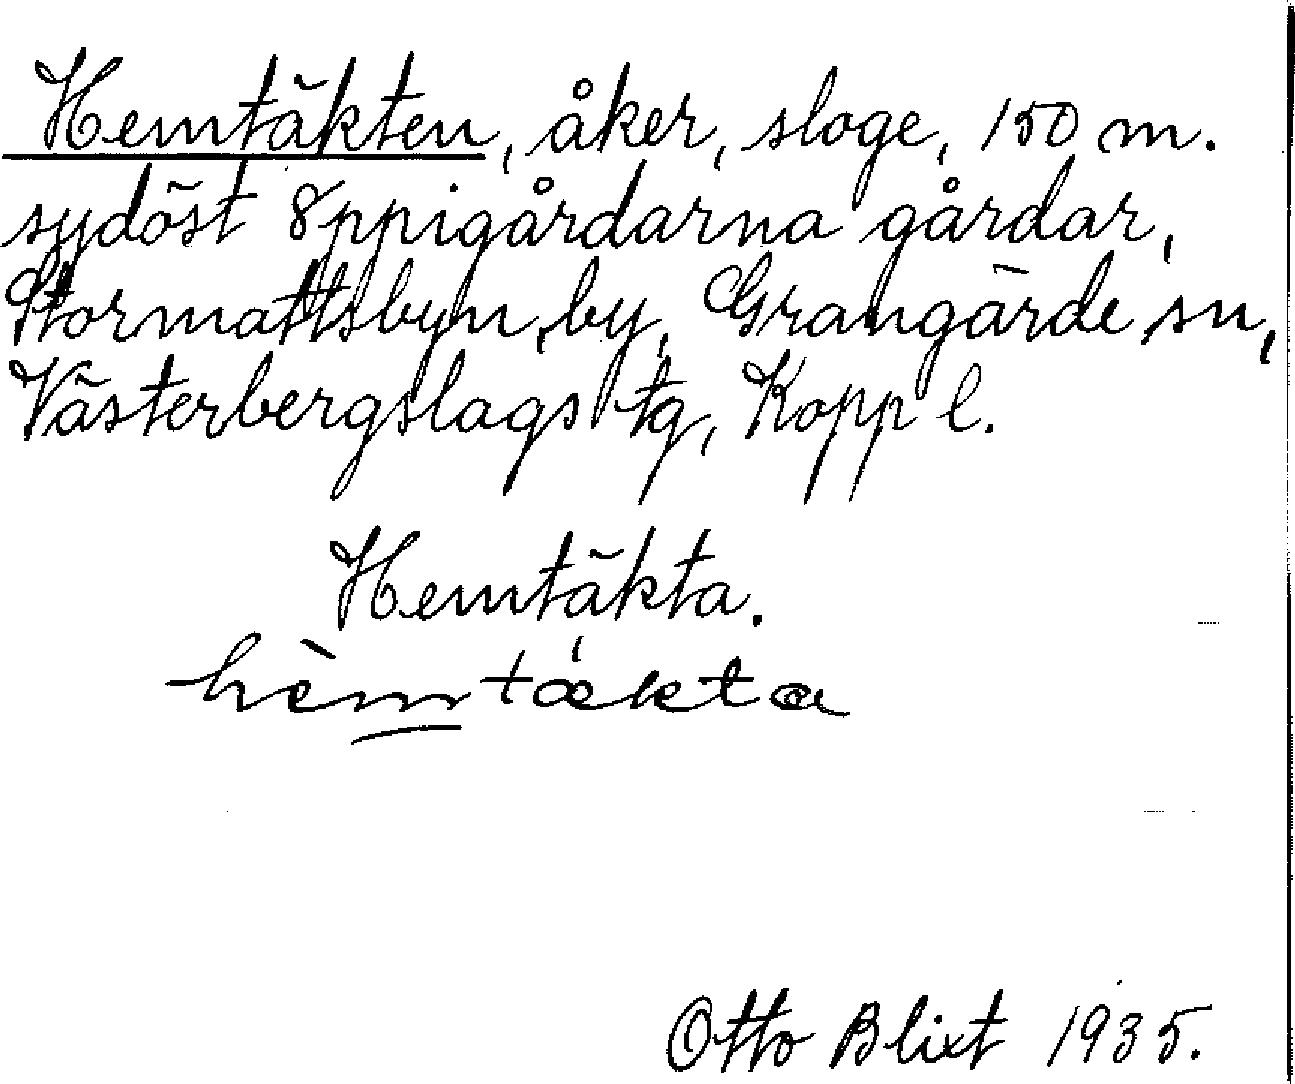 Hemtäkten, åker, sloge, 150 m.
sydöst Oppigårdarna gårdar,
Stormattsbyn, by, Grangärde sn,
Västerbergslags tg, Kopp l.
Hemtäkta.
hèmtǽkta
Otto Blixt 1935.